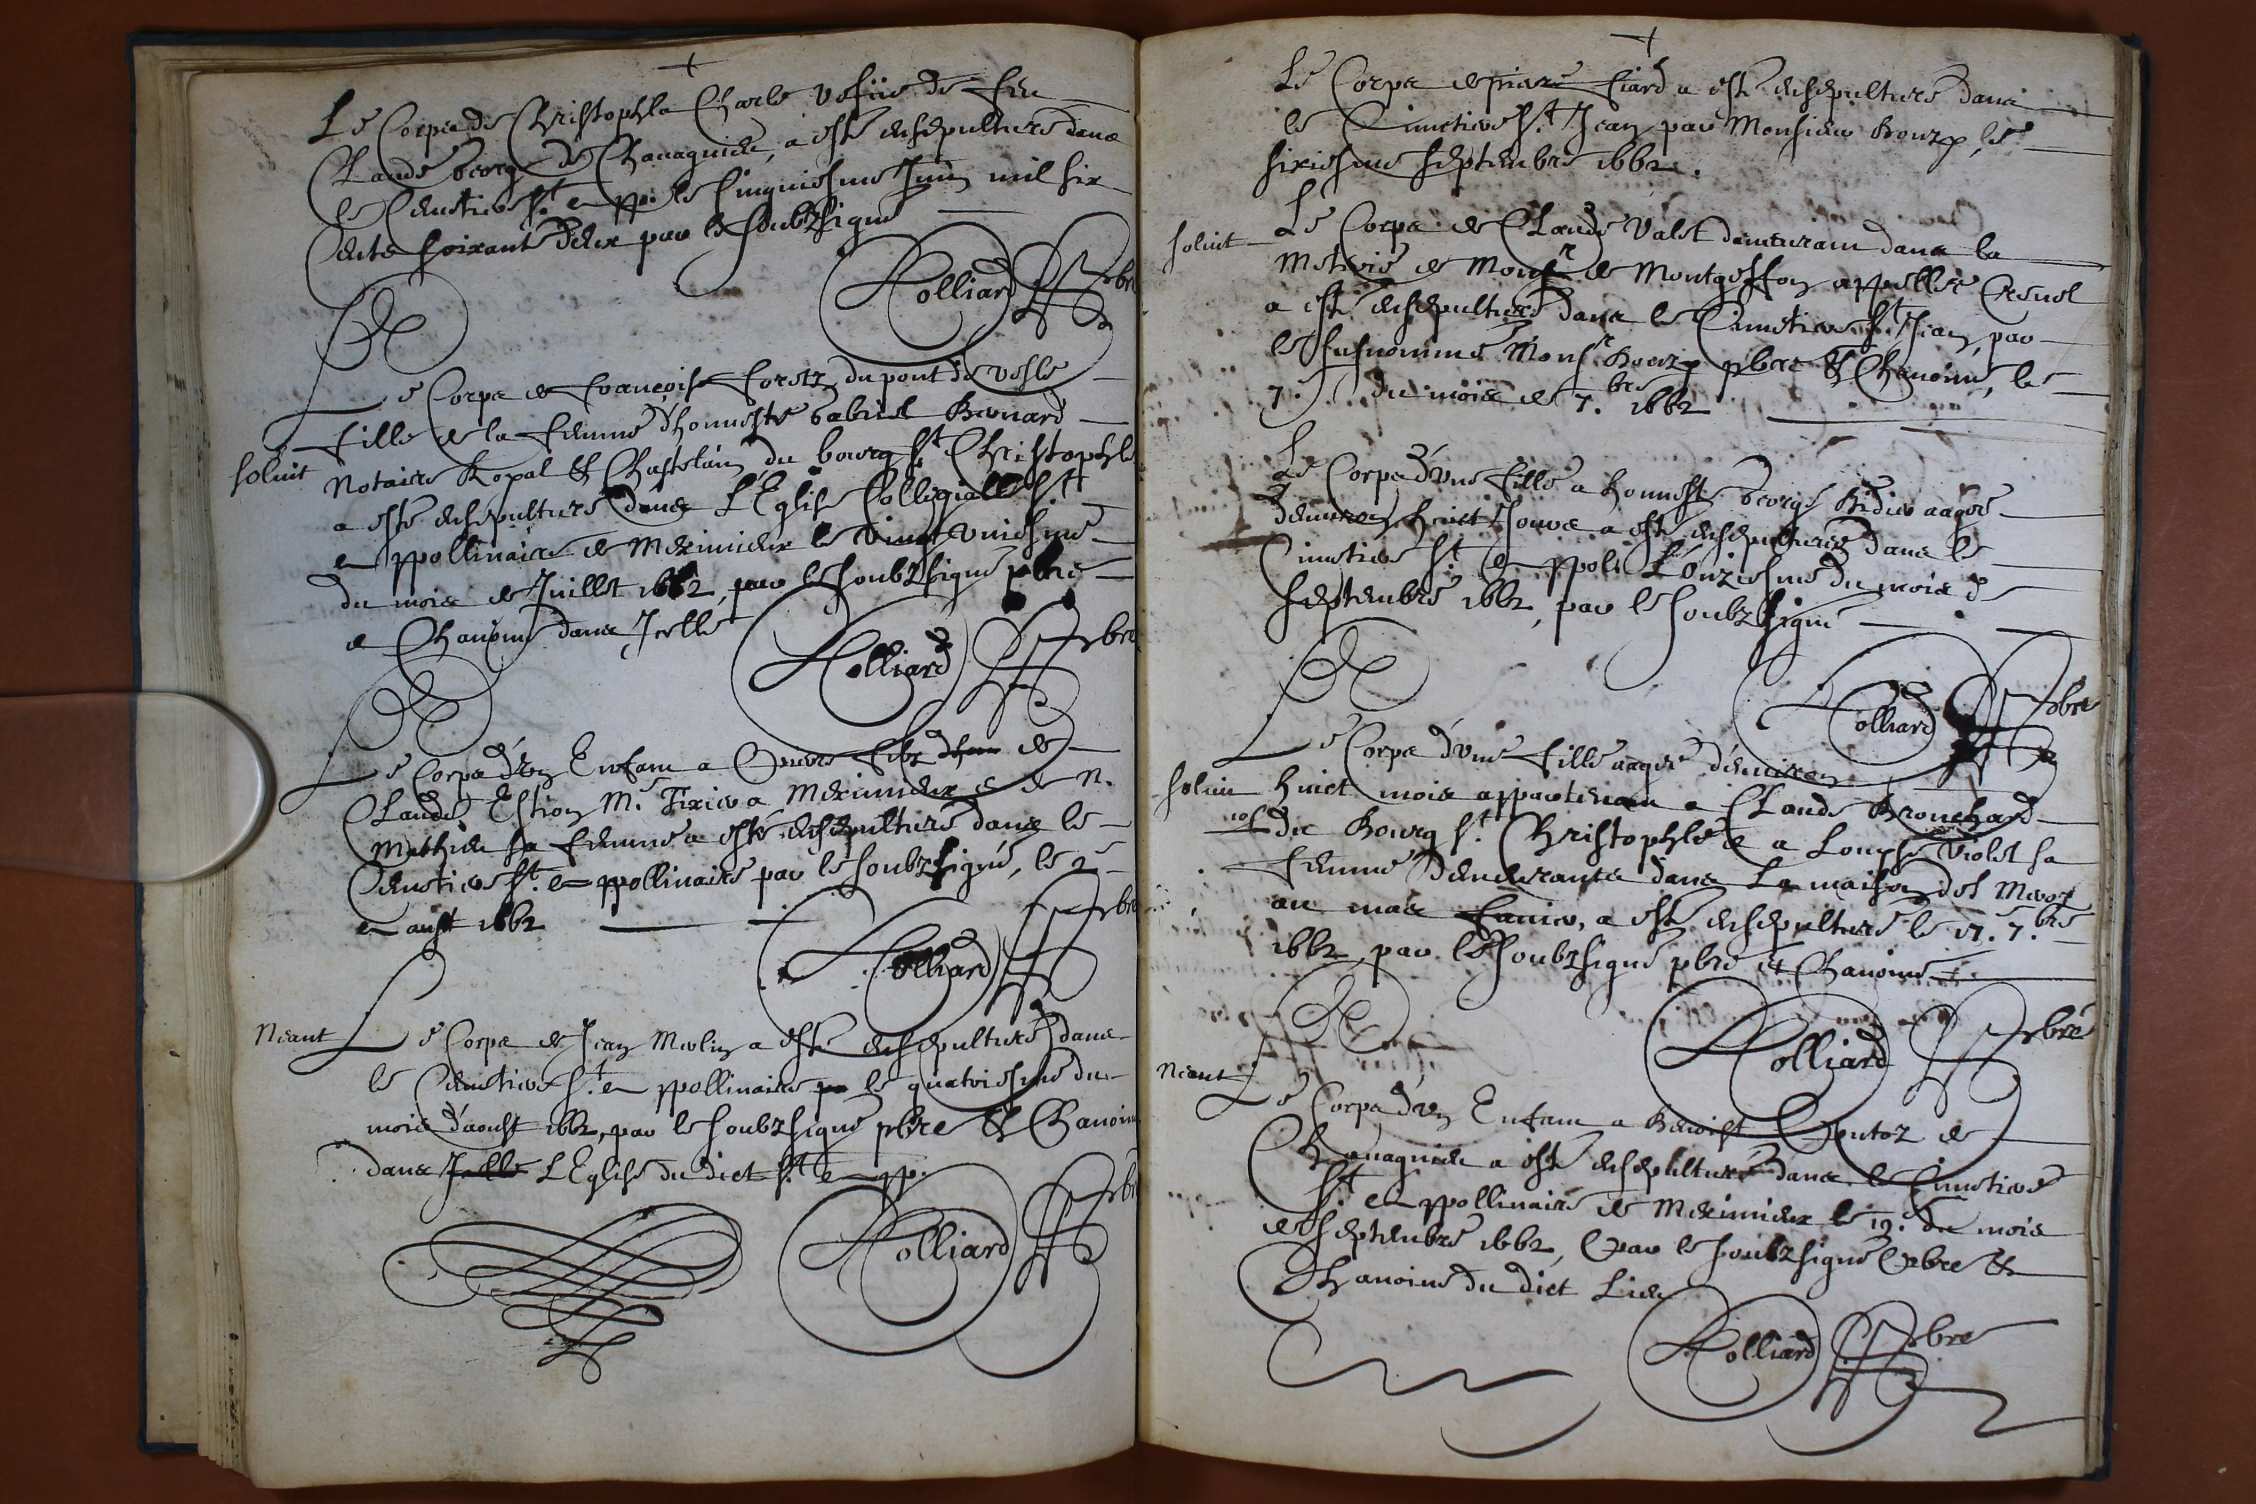 Le Corps de Christophla Charle vefüe de feu
Claude George de Chavagnieu, a esté ensepulturé dans
le Cemetiere St. App. le Cinquiesme Juin mil six
Cents soixante deux par le soubzsigné
Holliard pbre
Le Corps de Françoise Foretz du pont de Vesle
fille de la femme d'honneste Gabriel Bernard
solvit
Notaire Royal & Chastelain du bourg St Christophle
a esté ensepulturé dans L'Eglise Collegialle St
Appollinaire de Meximieux le vingt uniesme
du mois de Juillet 1662, par le soubzsigné pbre
& Chanoine dans Jcelle
Holliard pbre
Le Corps d'un Enfant a de
Claude Estion Me. Tixier a Meximieux & de N.
Mathieu sa femme a esté ensepulturé dans le
Cemetiere St. Appollinaire par le soubzsigné, le 2e
aust 1662
Holliard pbre
Neant
Le Corps de Jean Merlin a esté ensepulturé dans
le Cemetiere St. Appollinaire le quatriesme du
mois d'aoust 1662, par le soubzsigné pbre & Chanoine
dans Jcelle L'Eglise du dict St App.
Holliard pbre
Le Corps de pierre Fiard a esté ensepulturé dans
le Cimetiere St Jean par Monsieur Rouzp, le
sixiesme septembre 1662.
solvit
Le Corps de Claude Valet demeurant dans la
Meterie de Monsr de Montgeffon appellée Crenel
a esté ensepulturé dans le Cimetiere St Jean, par
le susnommé Monsr Rouzp pbre & Chanoine, le
7. du mois de 7.bre 1662
Le Corps d'une fille a honneste George Bidier aagée
d'environ huict Jours a esté ensepulturée dans le
Cimetiere St Appoli. L'onziesme du mois de
septembre 1662, par le soubzsigné
Holliard pbre
Le Corps d'une fille aagée d'environ
solvit
huict mois appartenant a Claude Brouchard
du Bourg St. Christophle & a Louyse Violet sa
femme demeurante dans La maison des
au mas a esté ensepulturé le 17. 7.bre
1662, par le soubzsigné pbre et Chanoine
Holliard pbre
Neant
Le Corps d'un Enfant a Benoist de
Chavagnieu a esté ensepulturé dans le Cimetiere
St Appollinaire de Meximieux le 19.e du mois
de septembre 1662, par le soubzsigné pbre &
Chanoine du dict Lieu
Holliard pbre